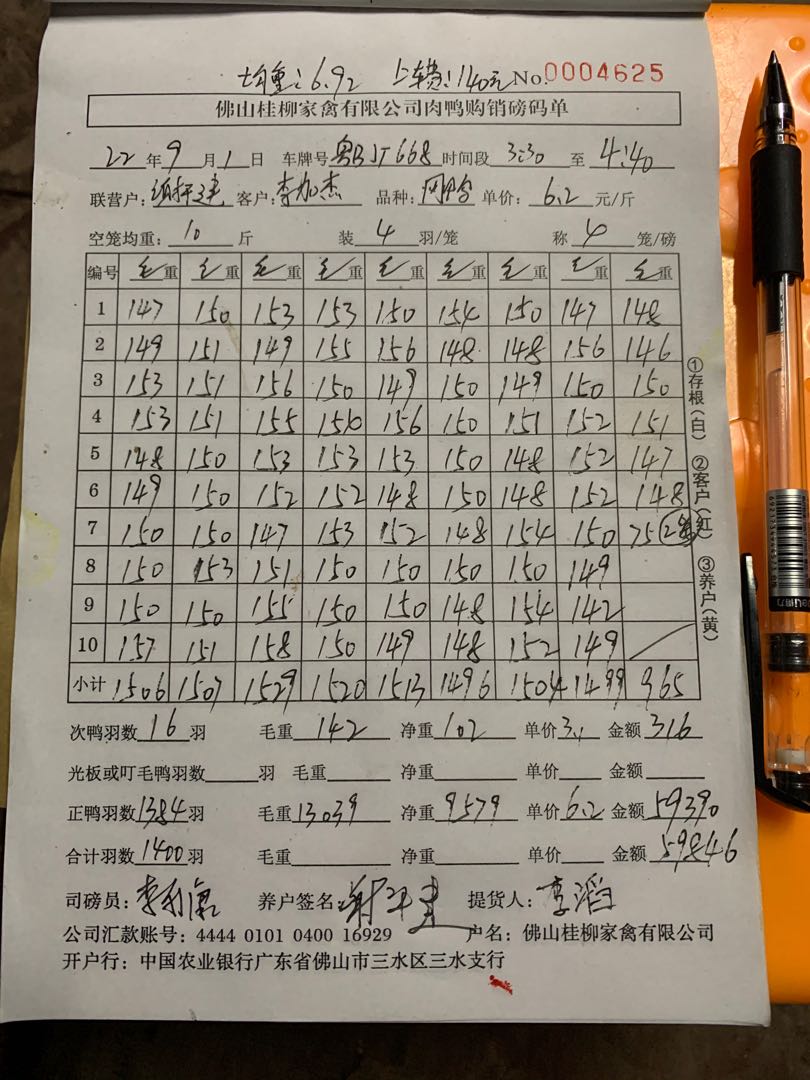 均重:6.92 上车费:140元 No.0004625
佛山桂柳家禽有限公司肉鸭购销磅码单
22年9月1日 车牌号 粤BJT668 时间段 3:30 至 4:40
联营户: 客户:李加杰 品种: 单价:6.2元/斤
空笼均重:10斤 装4羽/笼 称4笼/磅
编号 毛重 毛重 毛重 毛重 毛重 毛重 毛重 毛重 毛重
1 147 150 153 153 150 154 150 147 148
2 149 151 149 155 156 148 148 156 146
3 153 151 156 150 149 150 149 150 150
4 153 151 155 154 156 150 151 152 151
5 148 150 153 153 153 150 148 152 147
6 149 150 152 152 148 150 148 152 148
7 150 150 147 153 152 148 154 150 75
8 150 153 151 150 150 150 150 149
9 150 150 155 150 150 148 154 142
10 157 151 158 150 149 148 152 149
小计 1506 1507 1529 1520 1513 1496 1504 1499 965
次鸭羽数16羽 毛重142 净重102 单价3.1 金额316
光板或叮毛鸭羽数 羽 毛重 净重 单价 金额
正鸭羽数1384羽 毛重13039 净重9579 单价6.2 金额59390
合计羽数1400羽 毛重 净重 单价 金额59846
司磅员: 养户签名: 提货人:李滔
公司汇款账号:4444 0101 0400 16929 户名:佛山桂柳家禽有限公司
开户行:中国农业银行广东省佛山市三水区三水支行
①存根(白) ②客户(红) ③养户(黄)